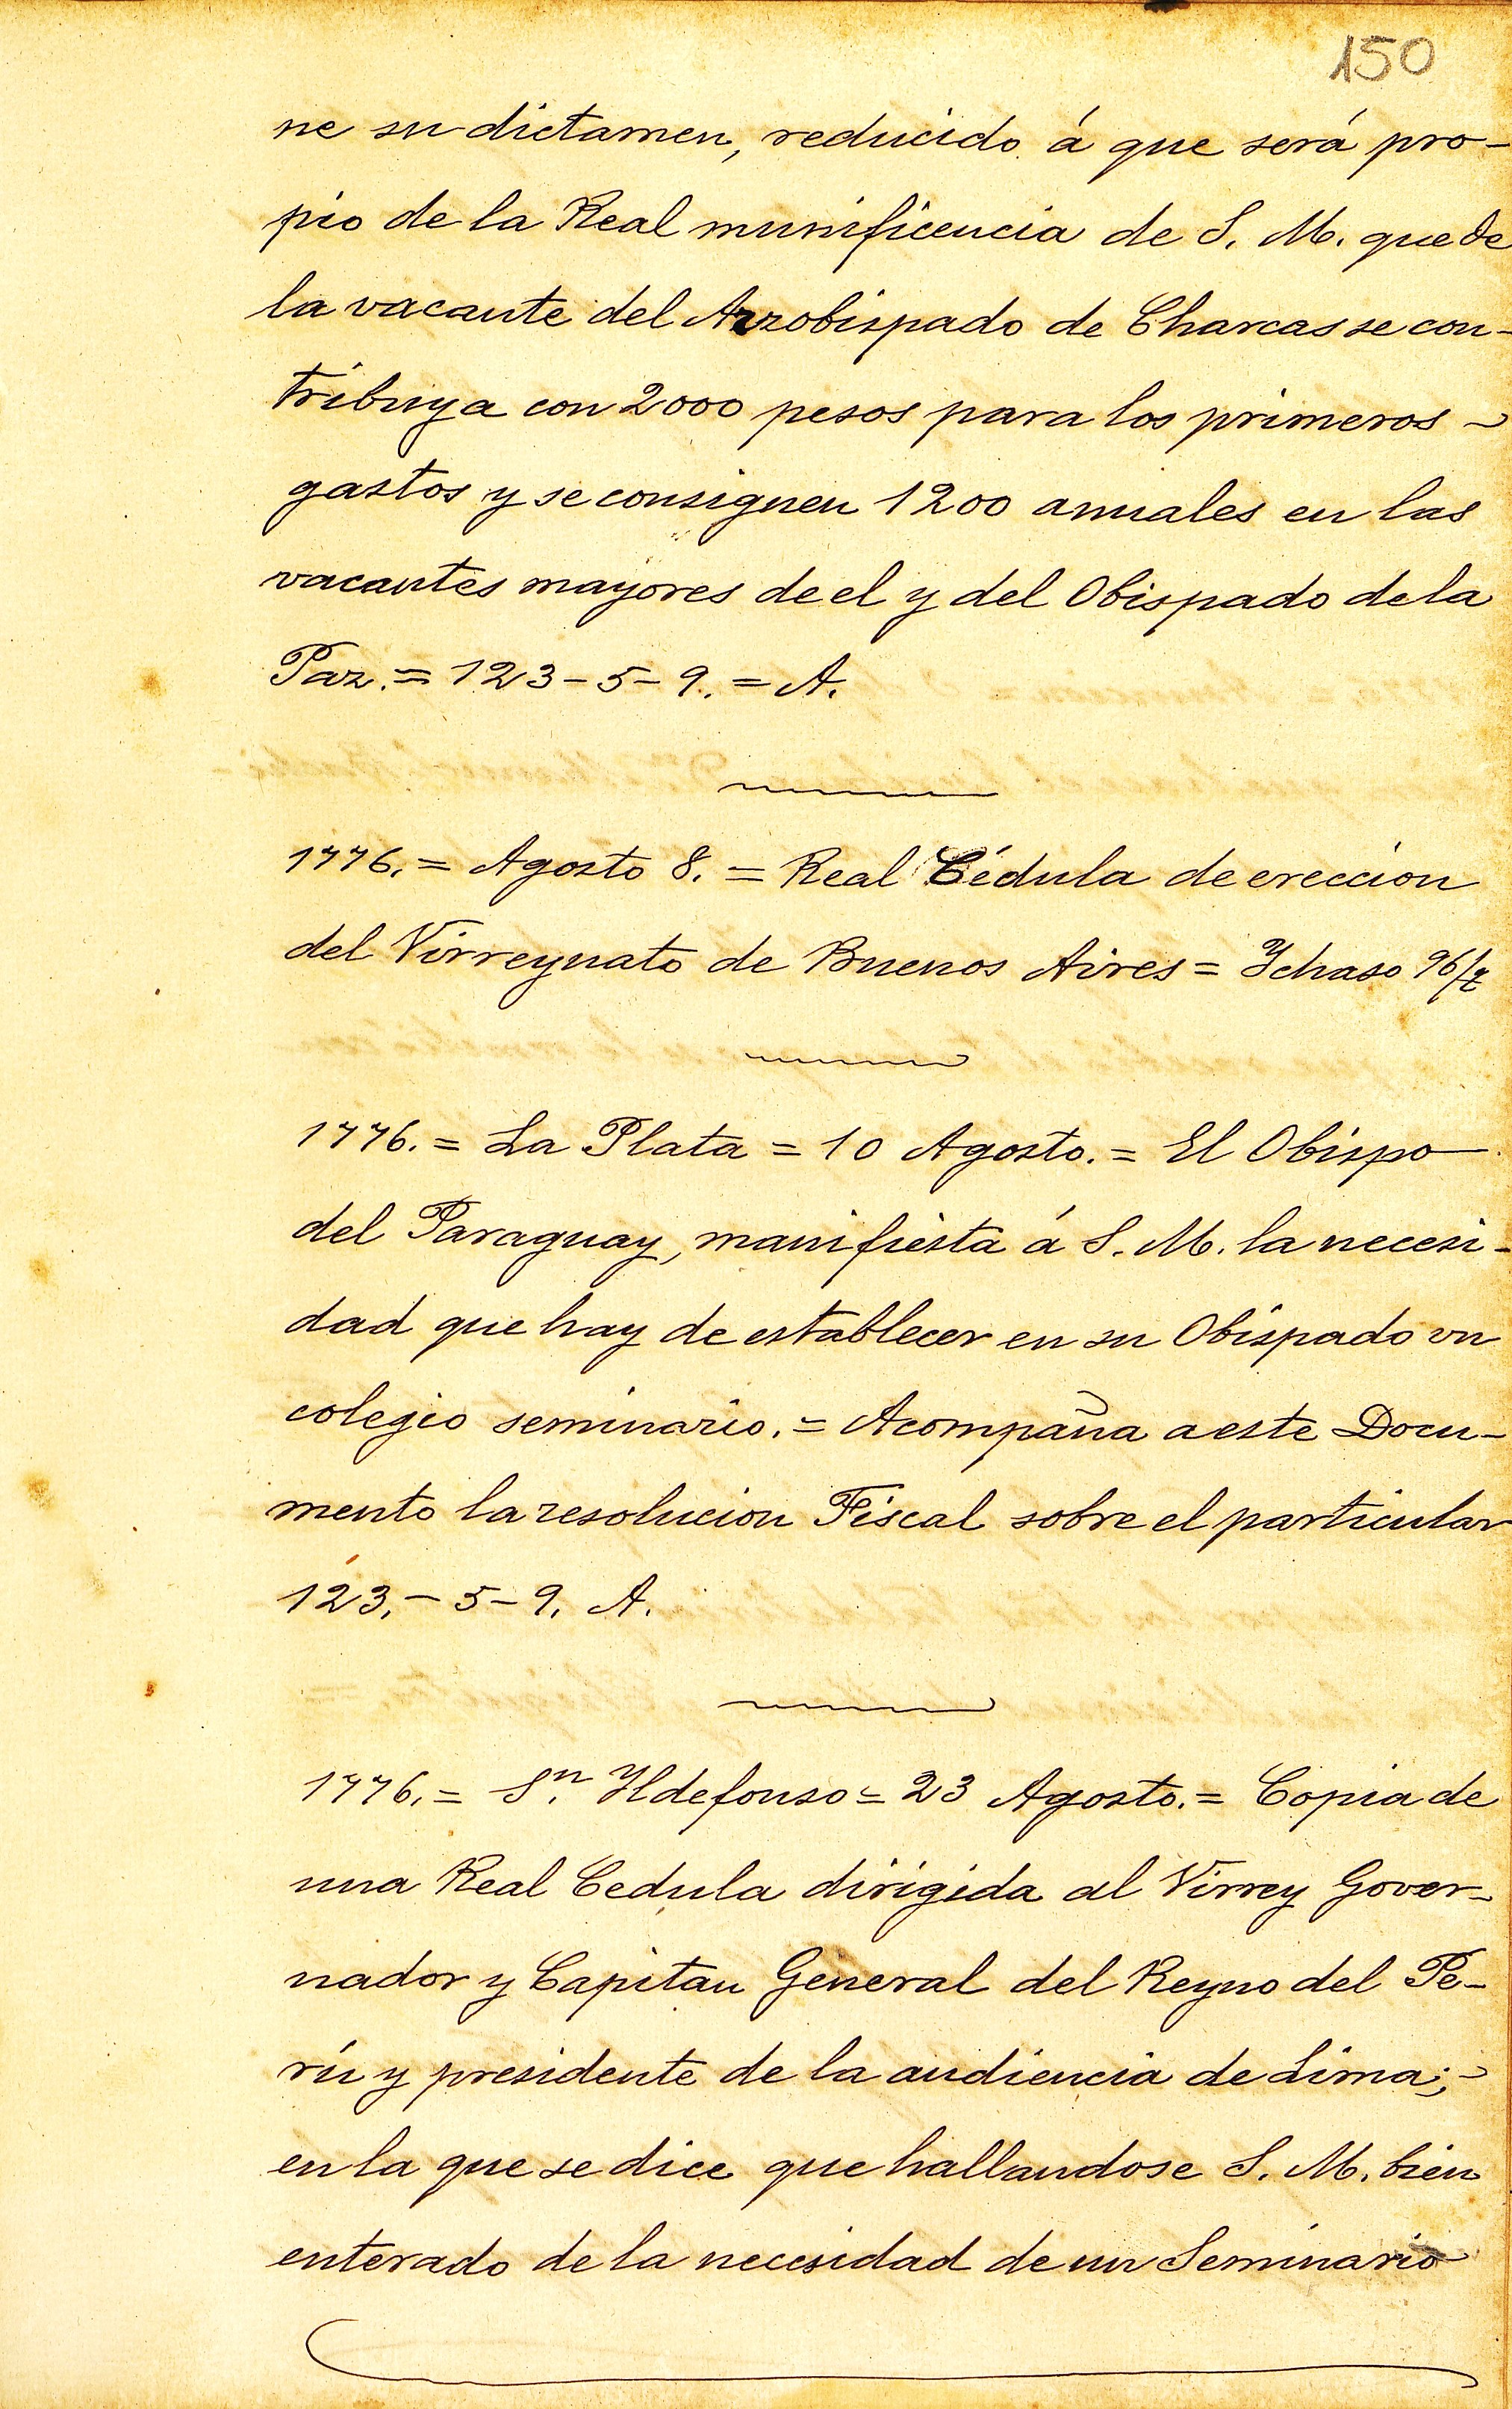 150
ne su dictamen, reducido á que será pro-
pio de la Real munificencia de S. M. que de
la vacante del Arzobispado de Charcas se con-
tribuya con 2000 pesos para los primeros -
gastos y se consignen 1200 anuales en las
vacantes mayores de el y del Obispado de la
Paz. = 123-5-9. = A.
1776. = Agosto 8. = Real Cédula de ereccion
del Virreynato de Buenos Aires =
1776. = La Plata = 10 Agosto. = El Obispo
del Paraguay, manifiesta á S. M. la necesi-
dad que hay de establecer en su Obispado un
colegio seminario. = Acompaña a este Docu-
mento la resolucion Fiscal sobre el particular
123.-5-9. A.
1776. = Sn. Ildefonso = 23 Agosto. = Copia de
una Real Cedula dirigida al Virrey Gover-
nador y Capitan General del Reyno del Pe-
rú y presidente de la audiencia de Lima; -
en la que se dice que hallandose S. M. bien
enterado de la necesidad de un Seminario